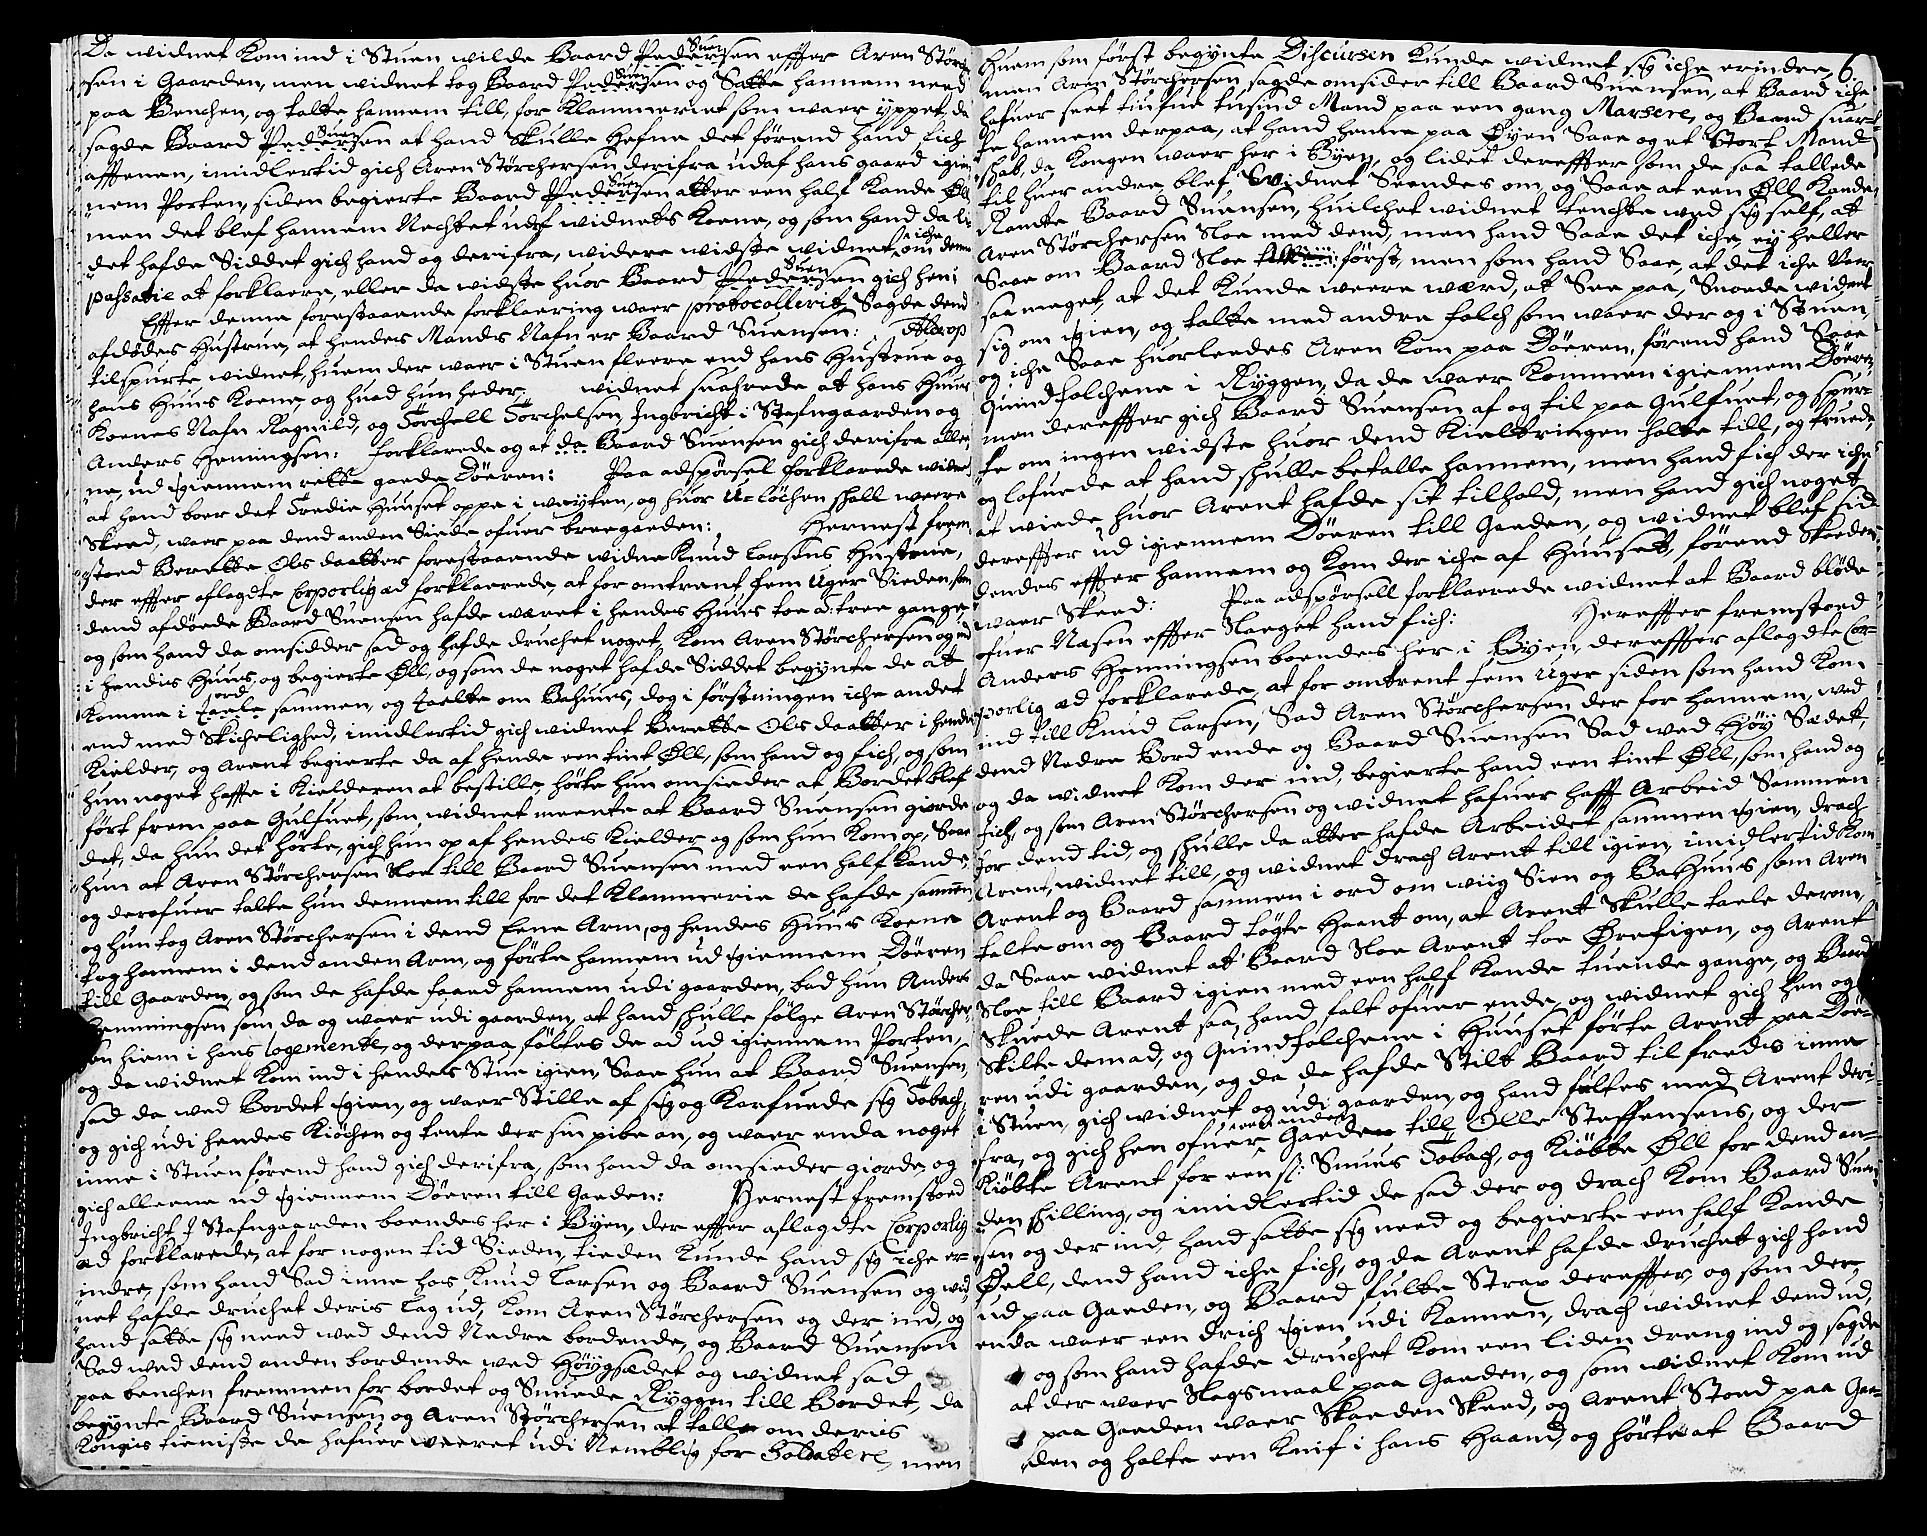 Da widnet Kom ind i Stuen wilde Baard Pedersen Suen effter Aren Störcher
sen i Gaarden, men widnet tog Baard Pedersen Suen og Satte hannem need
paa Benchen, og talte hannem till, for Klammeriet som waar yppet, da
sagde Baard Pedersen Suen at hand Skulle Hefne det förend hand fich
afftenen, imidlertid gich Aren Störchersen derifra udaf hans gaard igien
nem Porten, siden begierte Baard Pedersen Suen atter een half Kande Öll
men det blef hannem Nechtet udaf widnets Koene, og som hand da li-
det hafde Siddet gich hand og derifra, widere widste widnet iche om denne
passatie at forklaere, eller da widste huor Baard Pedersen Suen gich hen;
Effter denne forestaaende forklaering waer protocollerit, Sagde dend
afdödes Hustrue, at hendes Mands Nafn er Baard Suensen: Derop
tilspurte widnet, huem der waer i Stuen fleere end hans Hustrue og
hans Huus Koene, og huad hun heder, widnet suahrede at hans Huus
Koenes Nafn Ragnild, og Torchell Torchelsen, Ingbricht i Stafngaarden og
Anders Hemingsen: forklarede og at da Baard Suensen gich derifra alle-
ne, ud igiennem rette gaede Döeren: Paa adspörsel forklarede widnet
at hand boer det Tredie Huuset oppe i weyten, og huor U-löchen skall weere
Skeed, waer paa dend anden Siede ofuer bredegaarden: Hernest frem
stoed Berette Ols daatter forestaaende widne Knud Larsens Hustrue,
der effter aflagdte Corporlig æd forklarede, at for omtrent fem Uger Sieden som
dend afdöede Baard Suensen hafde weret i hendes Huus toe a: tree gange
og som hand da omsidder sad og hafde druchet noget, Kom Aren Störchersen og ind
i hendis Huus, og begierte Öll, og som de noget hafde Siddet begynte de at
Komme i Taele ord sammen, og Taelte om Bahuus, dog i förstningen iche andet
end med Skichelighed, imidlertid gich widnet Berette Ols daatter i hendes
Kielder, og Arent begierte da af hende een tint Öll, som hand og fich, og som
hun noget haffe i Kielderen at bestille, hörte hun omsieder at Bordet blef
fört frem paa Gulfuet, som widnet meente at Baard Suensen giorde
det, da hun det hörte, gich hun op af hendes Kielder og som hun Kom op, Saae
hun at Aren Störchersen Sloe till Baard Suensen med een half kande,
og derofuer talte hun dennem till for det Klammerie de hafde sammen,
og hun tog Aren Störchersen i dend Eene Arm, og hendes Huus Koene
tog hannem i dend anden Arm, og förte hannem ud igiennem Döeren
till Gaarden, og som de hafde faaed hannem udi gaarden, bad hun Anders
Hemmingsen som da og waer udi gaarden, at hand skulle fölge Aren Störcher-
sen hiem i hans logemente, og derpaa fölltes de ad ud igiennem Porten,
og da widnet Kom ind i hendes Stue igien, Saae hun at Baard Suensen,
sad da wed Bordet igien, og waer Stille af sig og Karfuede sig Tobach,
og gich udi hendes Kiöchen og tente der sin pibe an, og waer enda noget
inne i Stuen förend hand gich derifra, som hand da omsieder giorde, og
gich alleene ud igiennem Döeren till Gaeden: Hernest fremstoed
Ingbricht J Stafngaarden boendes her i Byen, der effter aflagdte Corporlig
æd forklarede, at for nogen tid Sieden, tieden Kunde hand sig iche er-
indre, som hand Sad inne hos Knud Larsen og Baard Suensen og wid-
net hafde druchet deris lag ud, Kom Aren Störchersen og der ind, og
hand satte sig need wed dend Nedre bordende, og Baard Suensen
Sad wed dend anden bordende wed Höygsædet og widnet sad
paa benchen fremmen for bordet og Snuede Ryggen till Bordet, da
begynte Baard Suensen og Aren Störchersen at talle om deris
Kongis tieniste de hafuer waeret udi Nemblig for Soldatere, men
6.
Huem som först begynte Discursen kunde widnet sig iche erindre,
men Aren Störchersen sagde omsider till Baard Suensen, at Baard iche
hafuer seet tiufue tusind Mand paa een gang Marsere, og Baard suar-
te hannem derpaa, at hand hanne paa Öyen Saae og et Stort Mand
skab, da Kongen waer her i Byen, og lidet dereffter som de saa tallede
til huer andre blef, widnet Seendes om, og Saae at een Öll Kande
Rante Baard Suensen, huilchet widnet tenchte wed sig self, at
Aren Störchersen Sloe med dend, men hand Saae det iche, ey heller
Saae om Baard Sloe först, men som hand Saae, at det iche waer
saa meget, at det kunde weere werd, at See paa, Snoede widnet
sig om igien, og talte med andre folch som waer der og i Stuen,
og iche Saae huorleedes Aren Kom paa Döeren, förend hand Saae
Quindfolchene i Ryggen, da de waer Kommen igiennem Döeren
men dereffter gich Baard Suensen af og til paa Gulfuet, og spur-
te om ingen widste huor dend Kieltringen holte till, og truede
og lofuede at hand skulle betalle hannem, men hand fich der iche
at wiede, huor Arent hafde sit tilhold, men hand gich noget
dereffter ud igiennem Döeren till Gaeden, og widnet blef sid
dendes effter hannem og Kom der iche af Huuset, förend skaeden
waer Skeed: Paa adspörsell forklarede widnet at Baard blöde
ofuer Nasen effter Slaeget hand fich: Hereffter fremstoed
Anders Hemmingsen boendes her i Byen, dereffter aflagdte Cor-
porlig æd forklarede, at for omtrent fem Uger siden som hand Kom
ind till Knud Larsen, Sad Aren Störchersen der for hannem, wed
dend Nedre Bord ende og Baard Suensen Sad wed Höy Sædet,
og da widnet Kom der ind, begierte hand een tint Öll, som hand og
fich, og som Aren Störchersen og widnet hafuer hafft Arbeid Sammen
for dend tid, og skulle da atter hafde Arbeidet sammen igien, drach
Arent, widnet till, og widnet drach Arent till igien, imidlertid Kom
Arent og Baard sammen i ord om wiig Sien og Bahuus som Aren
talte om og Baard tögte Haant om, at Arent Skulle taele derom,
da Saae widnet at Baard Sloe Arent toe Örefigen, og Arent
Sloe till Baard igien med een half Kande tuende gange, og Baard
Skuede Arent saa, hand falt ofuer ende, og widnet gich hen og
skilte dem ad, og Quindfolchene i Huuset förte Arent paa Döe-
ren udi gaarden, og da de hafde Stilt Baard til freds inne
i Stuen, gich widnet og udi gaarden, og hand fultes med Arent deri-
fra, og gich hen ofuer een anden Gaeden till Olle Steffensens, og der
Kiöbte Arent for een s: Snuus Tobach, og Kiöbte Öll for dend an-
den skilling, og imidlertid de sad der og drach Kom Baard Suen-
sen og der ind, hand satte sig need og begierte een half Kande
Öell, dend hand iche fich, og da Arent hafde druchet gich hand
ud paa Gaeden, og Baard fulte Strax dereffter, og som der
enda waer een drich igien udi Kannen, drach widnet dend ud,
og som hand hafde druchet Kom een liden dreng ind og sagde
at der waer Slagsmaal paa Gaeden, og som widnet Kom ud
paa Gaeden waer Skaeden Skeed, og Arent Stoed paa Gae-
den og holte een Knif i hans Haand, og hörte at Baard